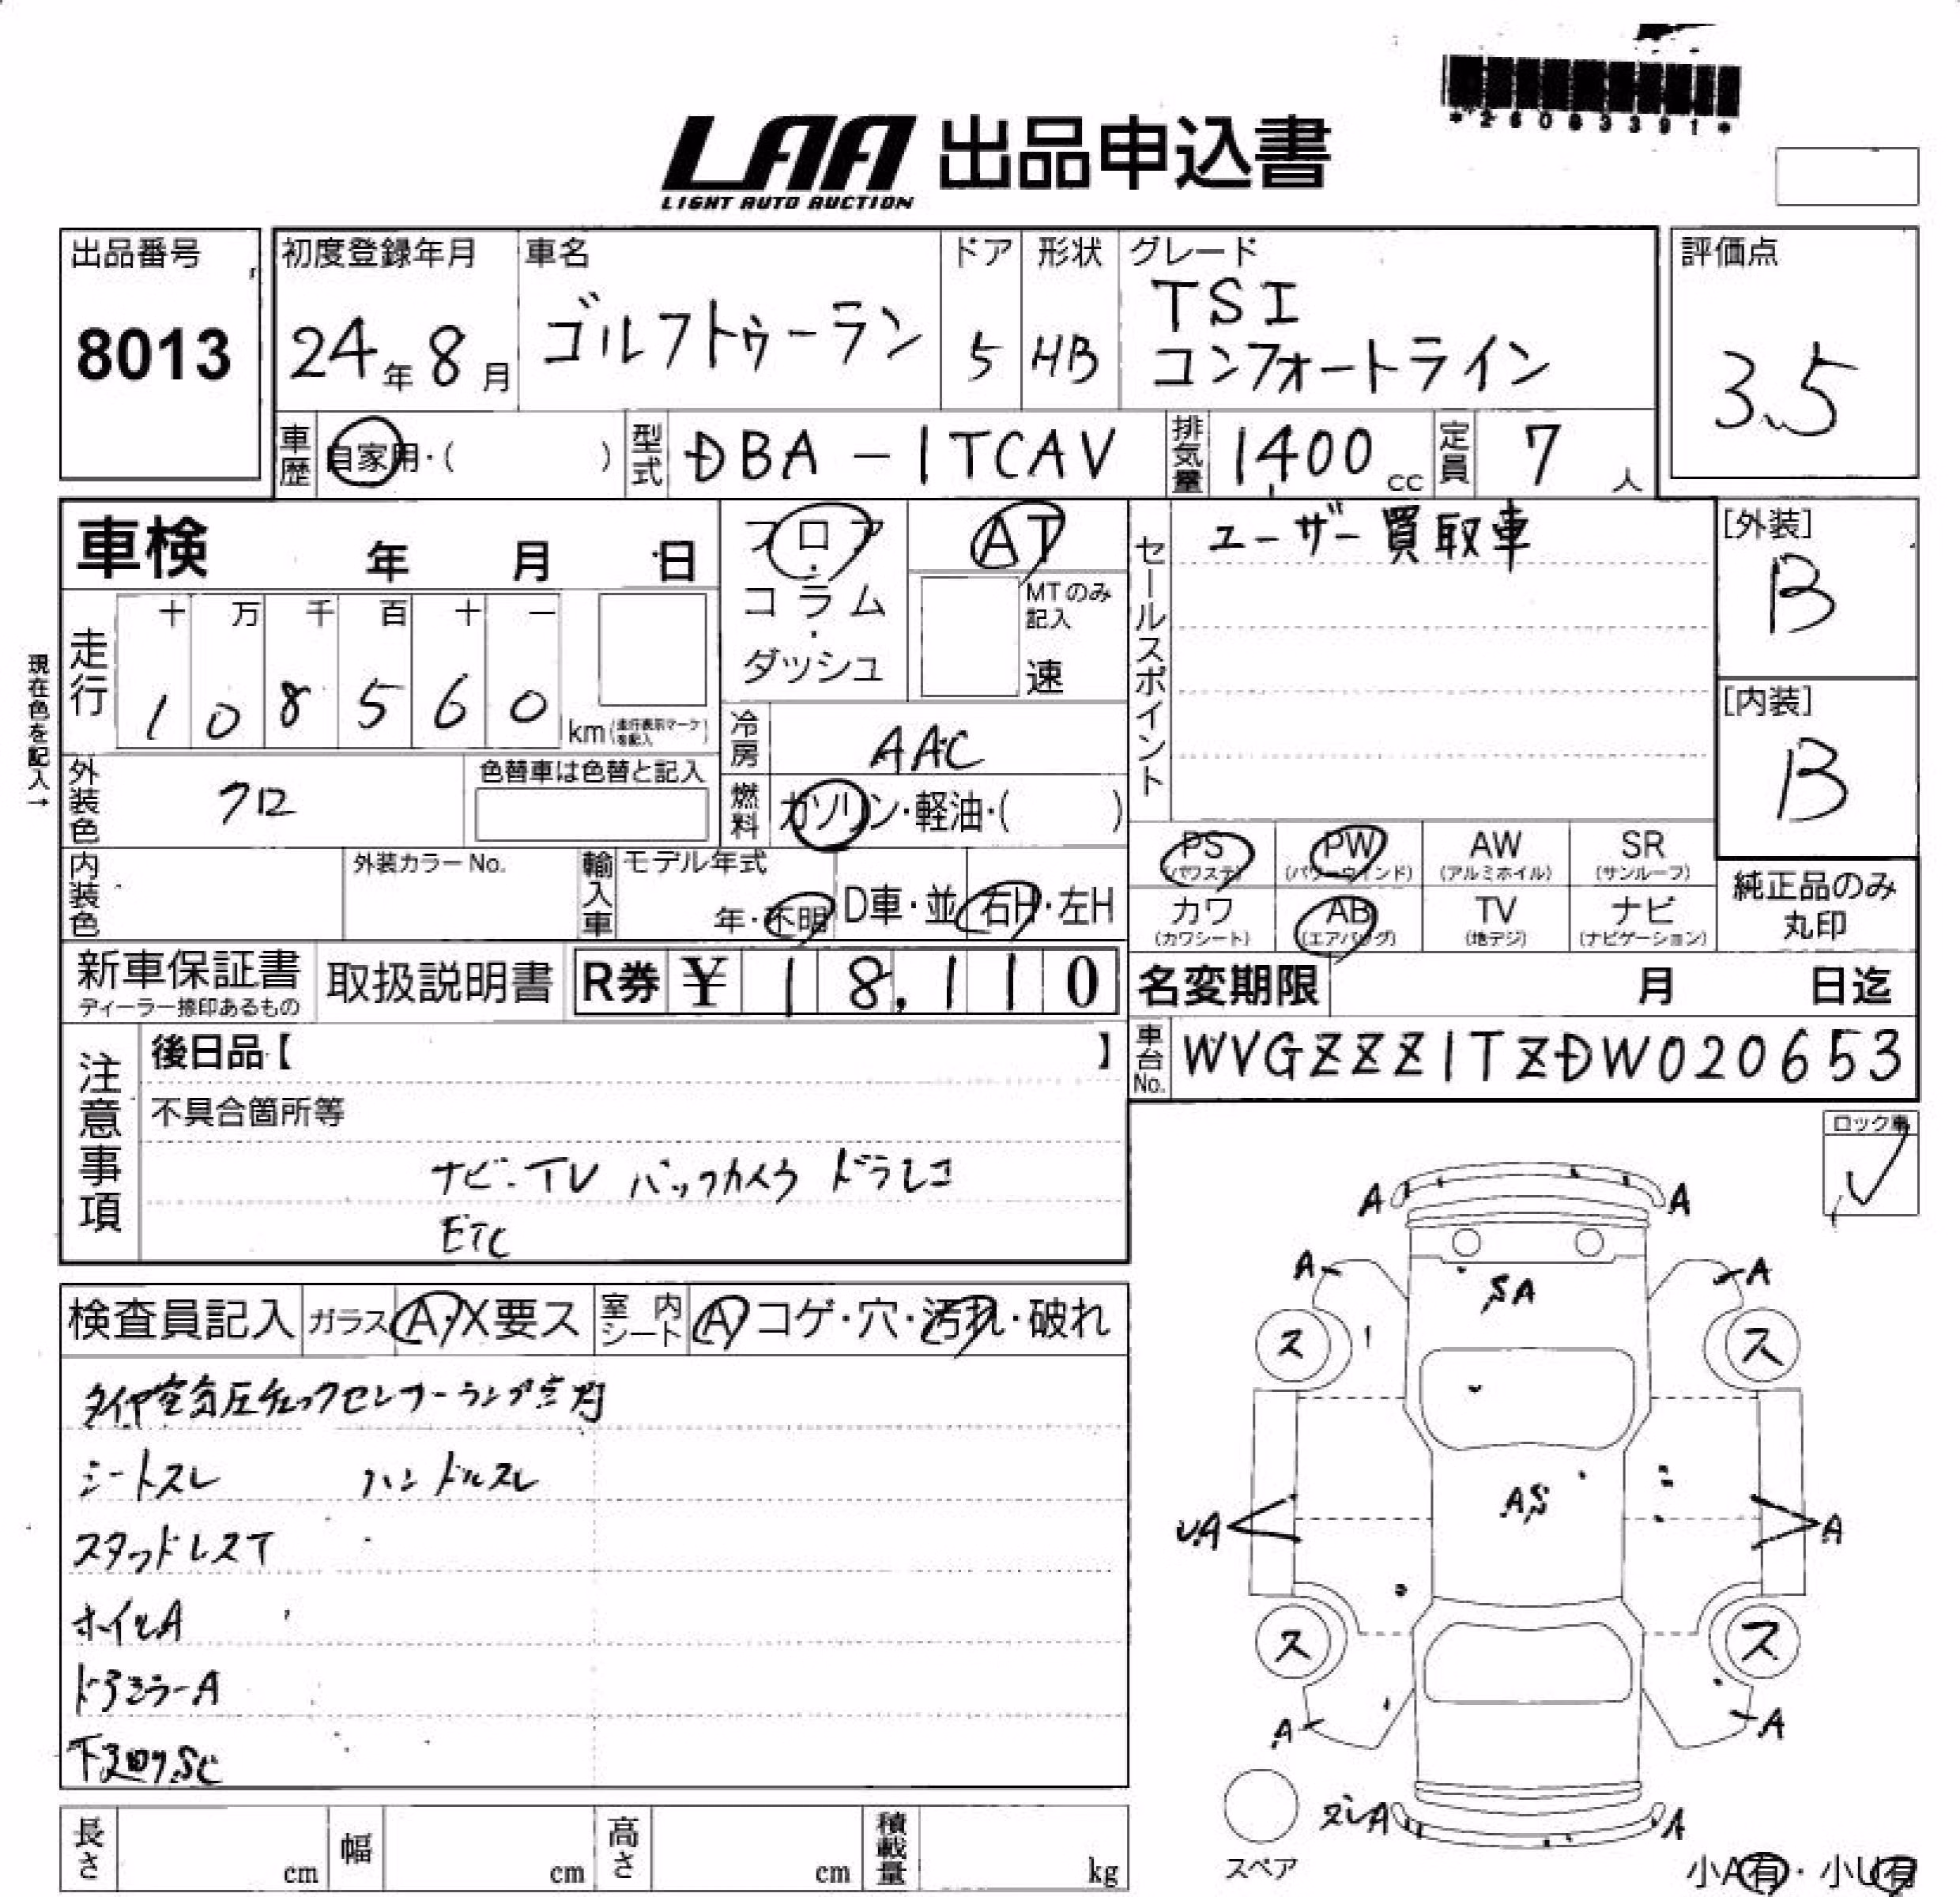 *26083391*
LAA 出品申込書
LIGHT AUTO AUCTION
出品番号
8013
初度登録年月
24年8月
車名
ゴルフトゥーラン
ドア
5
形状
HB
グレード
TSI
コンフォートライン
評価点
3.5
車歴 自家用・( )
型式 DBA-1TCAV
排気量 1400cc
定員 7人
車検 年 月 日
フロア・コラム・ダッシュ
AT
MTのみ記入
速
セールスポイント
ユーザー買取車
[外装]
B
[内装]
B
現在色を記入→
走行
十 万 千 百 十 一
1 0 8 5 6 0
km(走行表示マークを記入)
冷房 AAC
外装色 クロ
色替車は色替と記入
燃料 ガソリン・軽油・( )
内装色
外装カラーNo.
輸入車
モデル年式
年・不明
D車・並
右H・左H
PS (パワステ)
PW (パワーウインド)
AW (アルミホイル)
SR (サンルーフ)
カワ (カワシート)
AB (エアバッグ)
TV (地デジ)
ナビ (ナビゲーション)
純正品のみ
丸印
新車保証書
ディーラー捺印あるもの
取扱説明書
R券 ¥ 18,110
名変期限 月 日迄
車台No. WVGZZZ1TZDW020653
注意事項
後日品【 】
不具合箇所等
ナビ・TV バックカメラ ドラレコ
ETC
ロック車
検査員記入
ガラス A・X要ス
室内シート A コゲ・穴・汚れ・破れ
タイヤ空気圧チェックセンサーランプ点灯
シートスレ ハンドルスレ
スタッドレスT
ホイルA
ドアミラーA
下廻りSC
A A
A A
SA
ス ス
AS
UA A
ス ス
A A
ズレA A
スペア
小A有・小U有
長さ cm
幅 cm
高さ cm
積載量 kg